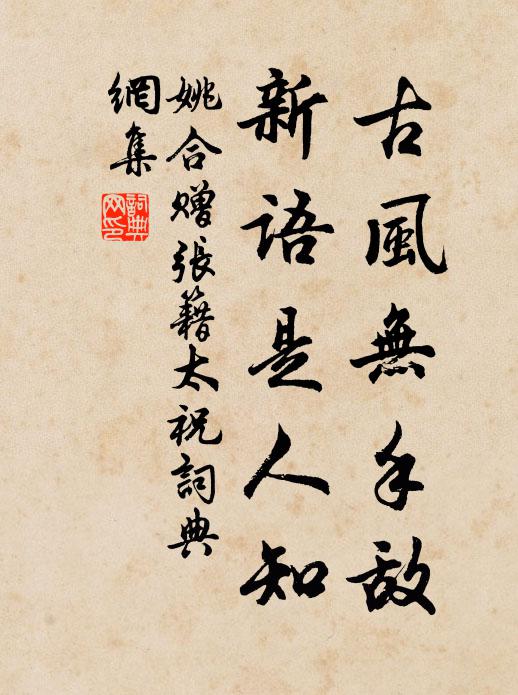 古風無手敵
新語是人知
姚合贈張籍太祝詞典
網集
詞典
网印